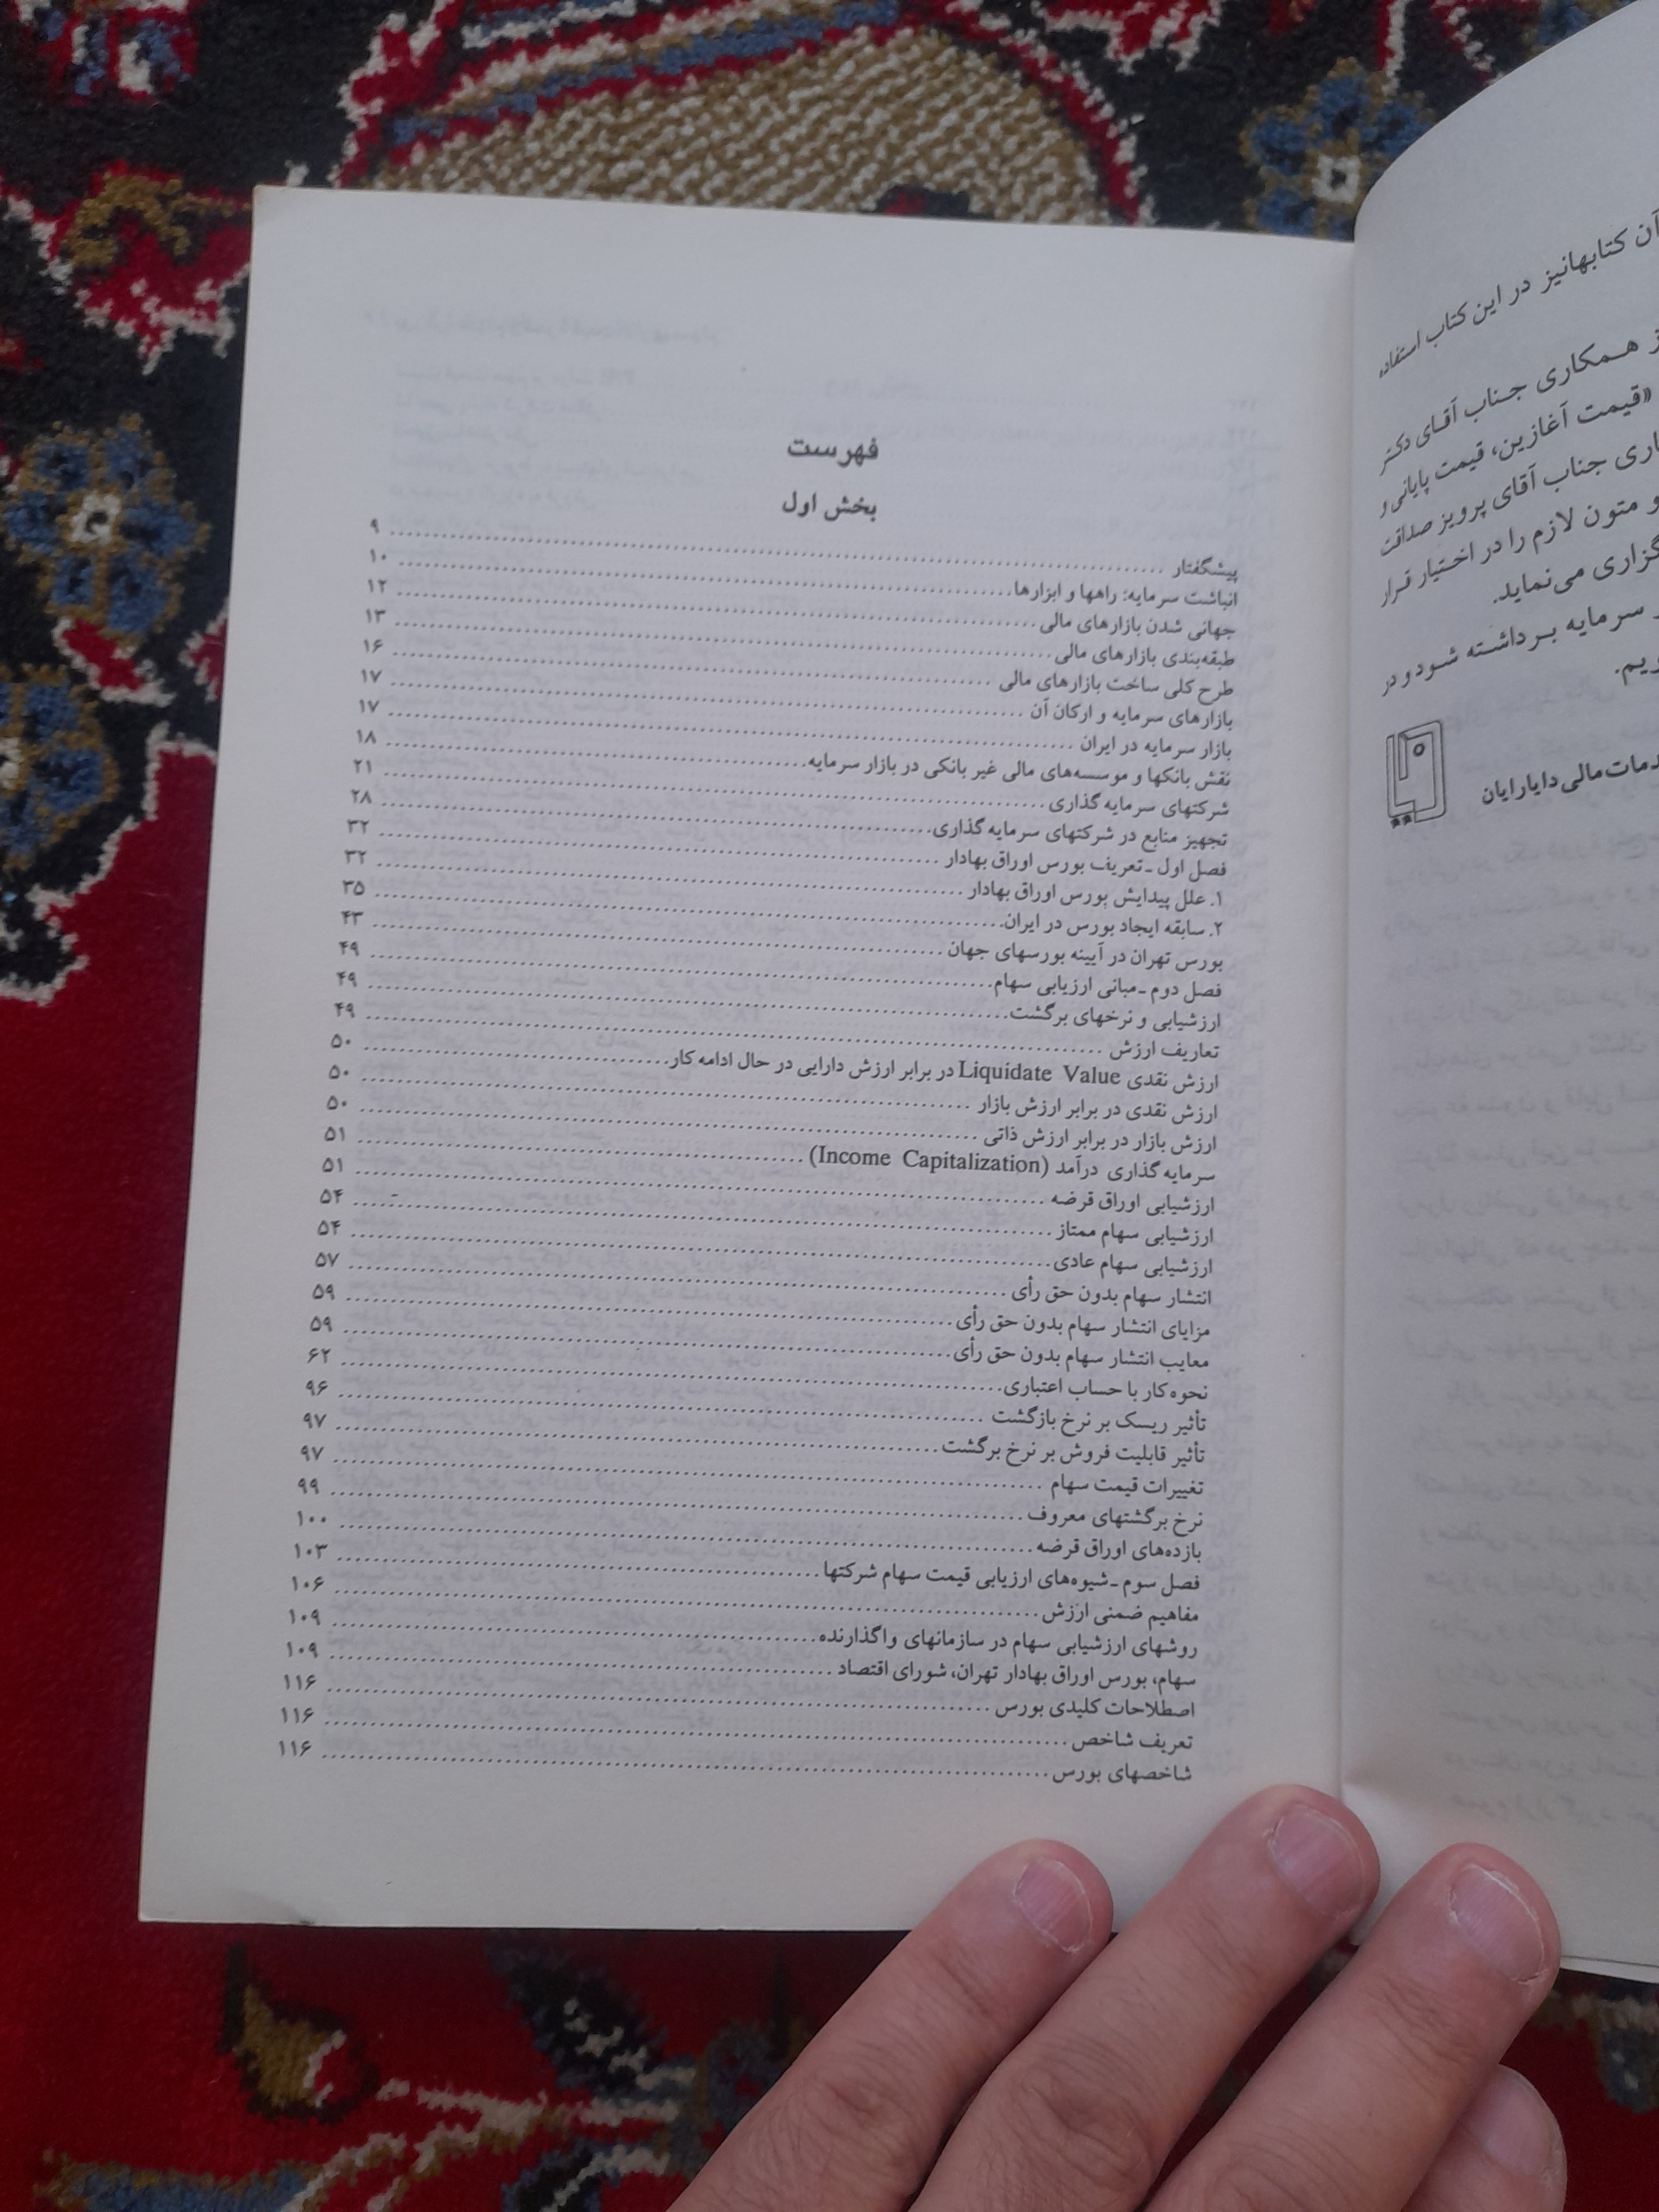 آن کتابهانیز در این کتاب استفاده
همکاری جناب آقای دکتر
«قیمت آغازین، قیمت پایانی و
جناب آقای پرویز صداقت
و متون لازم را در اختیار قرار
می‌نماید.
سرمایه برداشته شود و در
مالی دایارایان
فهرست
بخش اول
پیشگفتار ........ ۹
انباشت سرمایه: راهها و ابزارها ........ ۱۰
جهانی شدن بازارهای مالی ........ ۱۲
طبقه‌بندی بازارهای مالی ........ ۱۳
طرح کلی ساخت بازارهای مالی ........ ۱۶
بازارهای سرمایه و ارکان آن ........ ۱۷
بازار سرمایه در ایران ........ ۱۷
نقش بانکها و موسسه‌های مالی غیر بانکی در بازار سرمایه ........ ۱۸
شرکتهای سرمایه گذاری ........ ۲۱
تجهیز منابع در شرکتهای سرمایه گذاری ........ ۲۸
فصل اول ـ تعریف بورس اوراق بهادار ........ ۳۲
۱. علل پیدایش بورس اوراق بهادار ........ ۳۲
۲. سابقه ایجاد بورس در ایران ........ ۳۵
بورس تهران در آیینه بورسهای جهان ........ ۴۳
فصل دوم ـ مبانی ارزیابی سهام ........ ۴۹
ارزشیابی و نرخهای برگشت ........ ۴۹
تعاریف ارزش ........ ۴۹
ارزش نقدی Liquidate Value در برابر ارزش دارایی در حال ادامه کار ........ ۵۰
ارزش نقدی در برابر ارزش بازار ........ ۵۰
ارزش بازار در برابر ارزش ذاتی ........ ۵۰
سرمایه گذاری درآمد (Income Capitalization) ........ ۵۱
ارزشیابی اوراق قرضه ........ ۵۱
ارزشیابی سهام ممتاز ........ ۵۴
ارزشیابی سهام عادی ........ ۵۴
انتشار سهام بدون حق رأی ........ ۵۷
مزایای انتشار سهام بدون حق رأی ........ ۵۹
معایب انتشار سهام بدون حق رأی ........ ۵۹
نحوه کار با حساب اعتباری ........ ۶۲
تأثیر ریسک بر نرخ بازگشت ........ ۹۶
تأثیر قابلیت فروش بر نرخ برگشت ........ ۹۷
تغییرات قیمت سهام ........ ۹۷
نرخ برگشتهای معروف ........ ۹۹
بازده‌های اوراق قرضه ........ ۱۰۰
فصل سوم ـ شیوه‌های ارزیابی قیمت سهام شرکتها ........ ۱۰۳
مفاهیم ضمنی ارزش ........ ۱۰۶
روشهای ارزشیابی سهام در سازمانهای واگذارنده ........ ۱۰۹
سهام، بورس اوراق بهادار تهران، شورای اقتصاد ........ ۱۰۹
اصطلاحات کلیدی بورس ........ ۱۱۶
تعریف شاخص ........ ۱۱۶
شاخصهای بورس ........ ۱۱۶